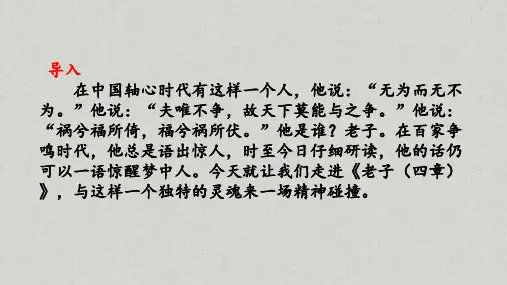 导入
在中国轴心时代有这样一个人，他说：“无为而无不
为。”他说：“夫唯不争，故天下莫能与之争。”他说：
“祸兮福所倚，福兮祸所伏。”他是谁？老子。在百家争
鸣时代，他总是语出惊人，时至今日仔细研读，他的话仍
可以一语惊醒梦中人。今天就让我们走进《老子（四章）
》，与这样一个独特的灵魂来一场精神碰撞。